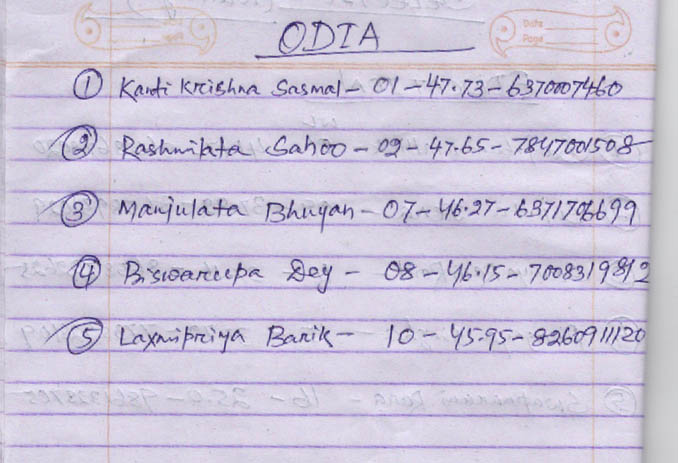 Date
Page
ODIA
① Kanti Krishna Sasmal - 01 - 47.73 - 6370007460
② Rashmilata Sahoo - 02 - 47.65 - 7847001508
③ Manjulata Bhuyan - 07 - 46.27 - 6371706699
④ Biswarupa Dey - 08 - 46.15 - 7008319812
⑤ Laxmipriya Barik - 10 - 45.95 - 8260911120